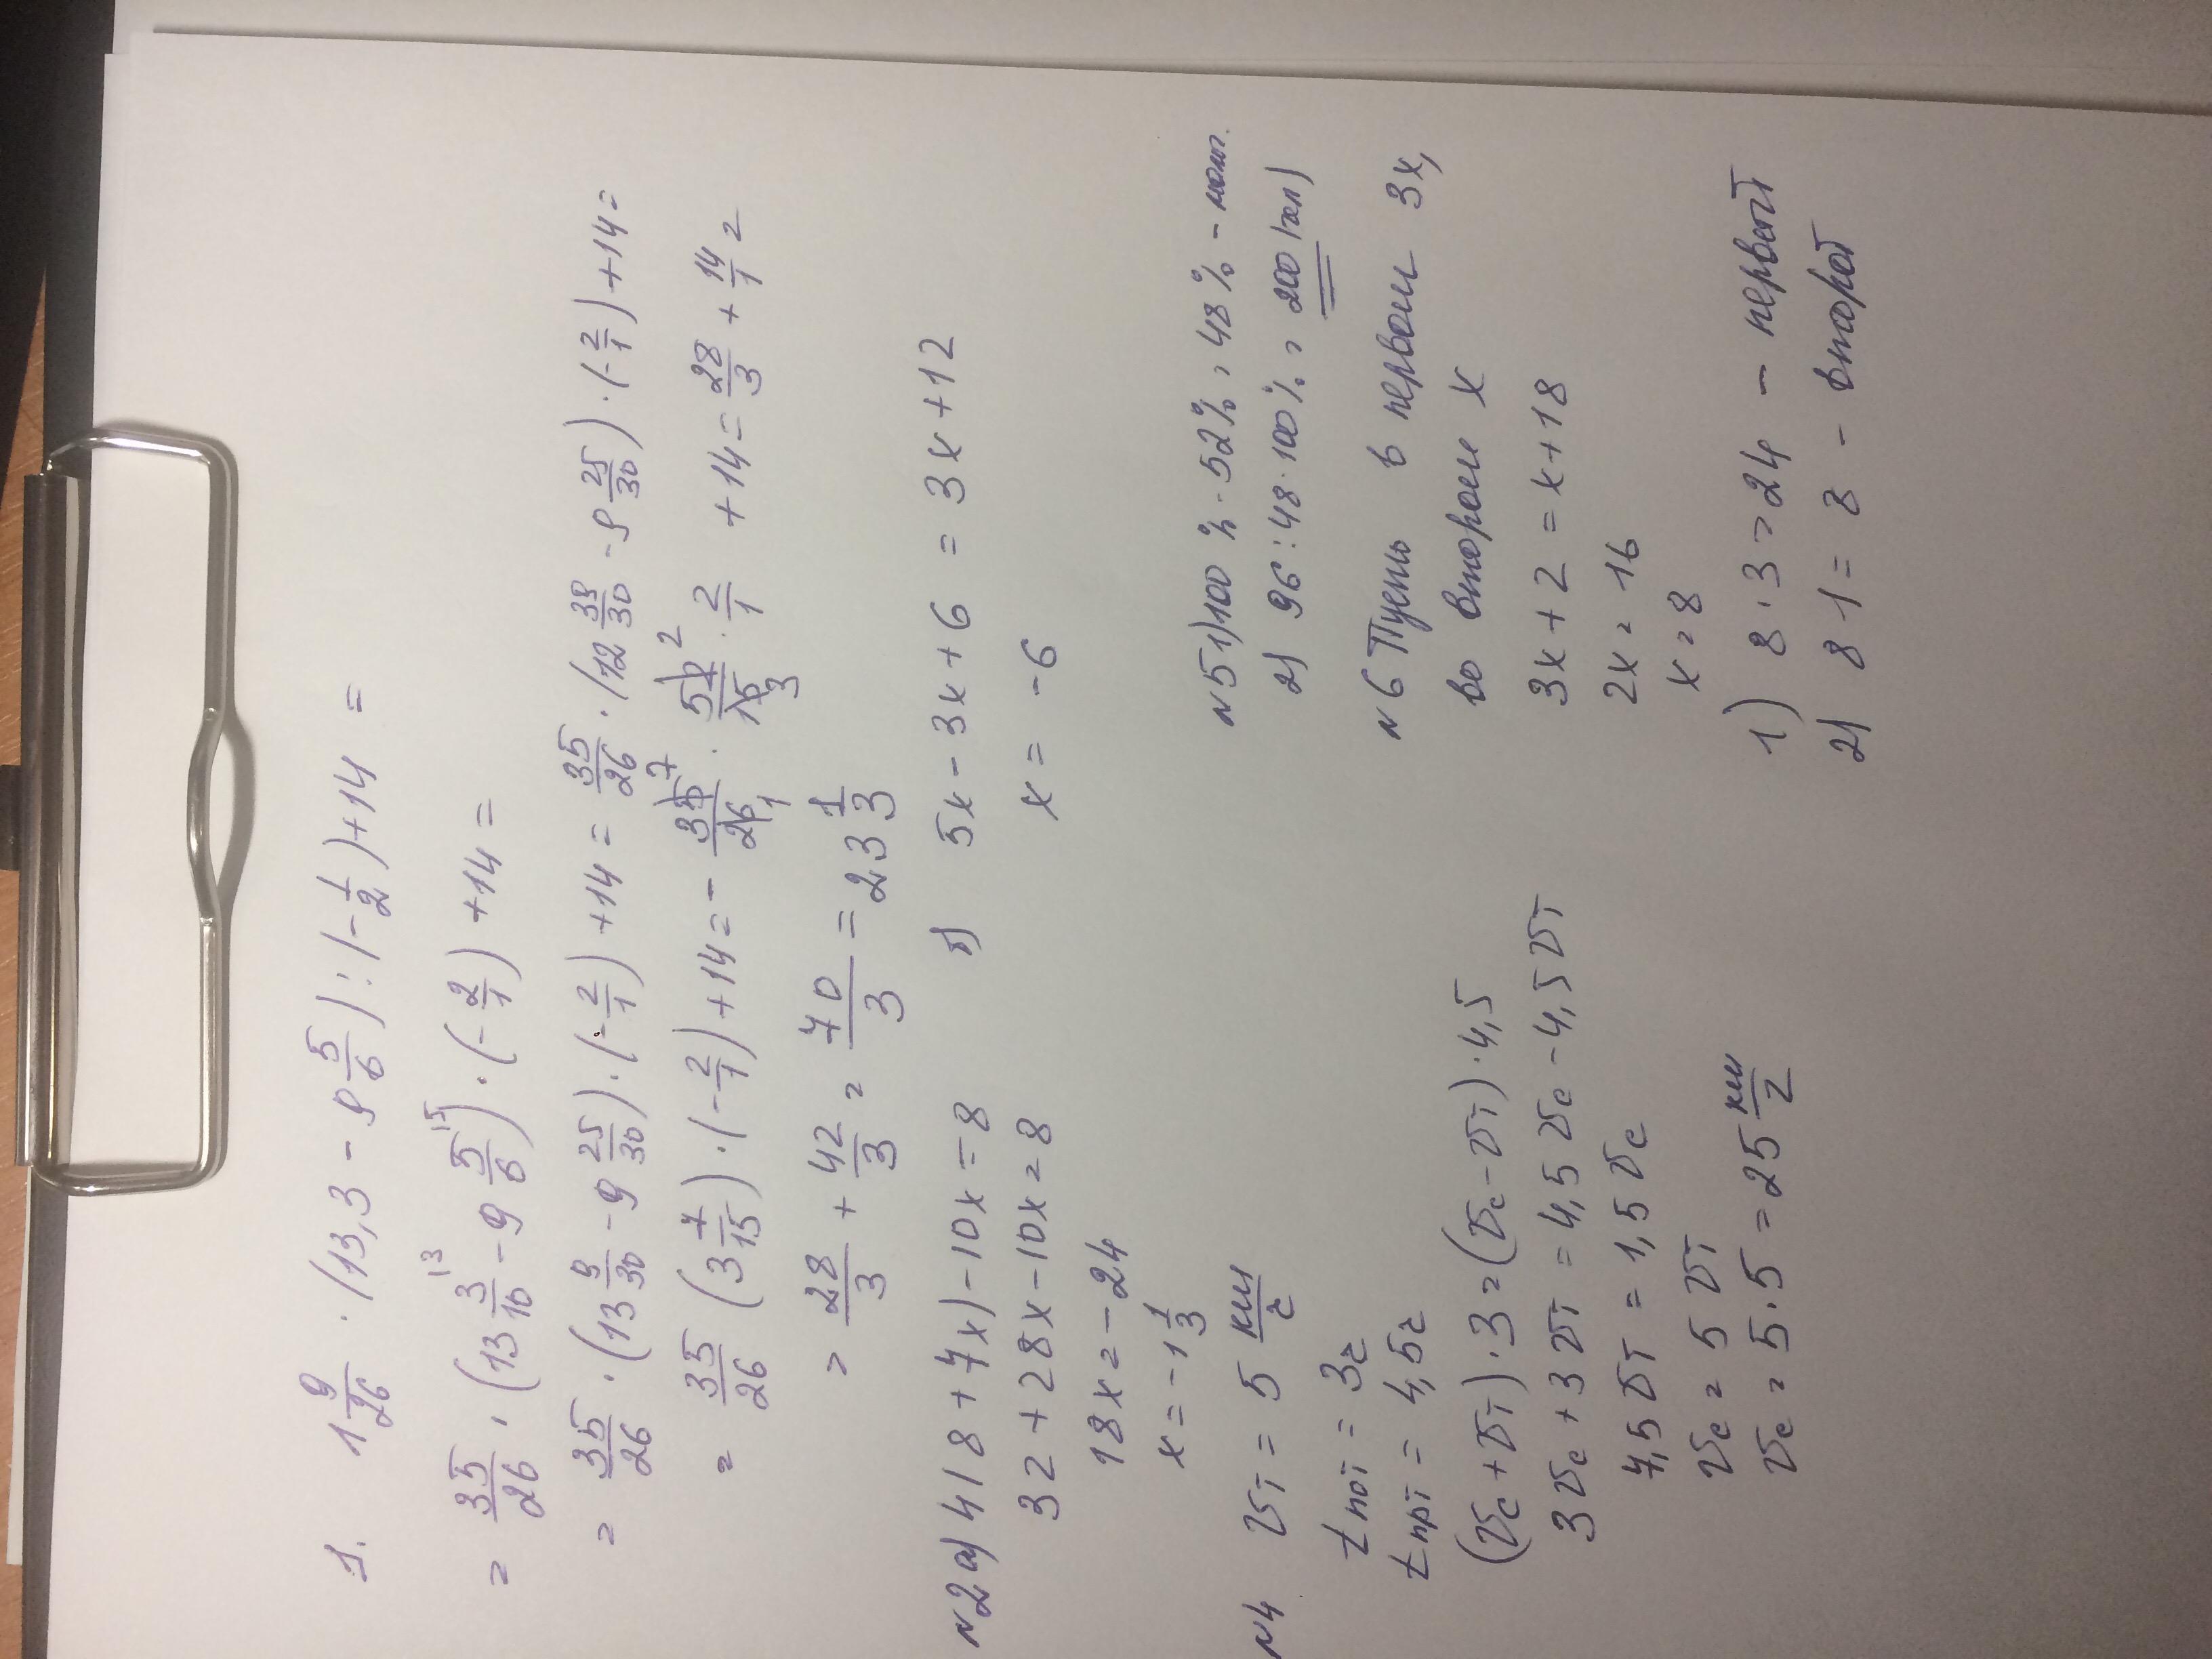 1. 1 9/26 · (13,3 - 9 5/6) : (-1/2) + 14 =
= 35/26 · (13 3/10 - 9 5/6) · (-2/1) + 14 =
= 35/26 · (13 9/30 - 9 25/30) · (-2/1) + 14 = 35/26 · (12 39/30 - 9 25/30) · (-2/1) + 14 =
= 35/26 (3 7/15) · (-2/1) + 14 = - 35/26 · 52/15 · 2/1 + 14 = 28/3 + 14/1 =
= 28/3 + 42/3 = 70/3 = 23 1/3
N2 a) 4(8 + 7x) - 10x = 8
32 + 28x - 10x = 8
18x = -24
x = -1 1/3
б) 5x - 3x + 6 = 3x + 12
x = -6
N4 vт = 5 км/г
t пот = 3г
t прт = 4,5г
(vc + vт) · 3 = (vc - vт) · 4,5
3 vc + 3 vт = 4,5 vc - 4,5 vт
7,5 vт = 1,5 vc
vc = 5 vт
vc = 5 · 5 = 25 км/г
N5 1) 100 % - 52% = 48 % -
2) 96 : 48 · 100% = 200 (кал)
N6 Пусть в первом 3x,
во втором x
3x + 2 = x + 18
2x = 16
x = 8
1) 8 · 3 = 24 - первый
2) 8 · 1 = 8 - второй